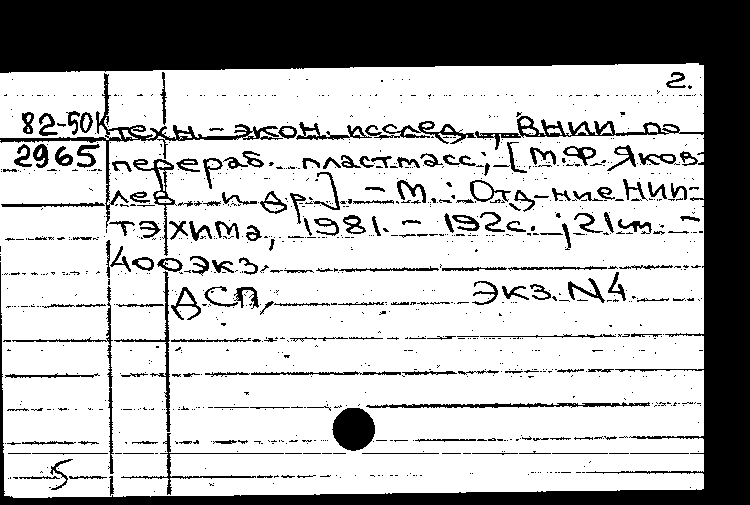 2.
82-50К техн.-экон. исслед., ВНИИ по
2965 перераб. пластмасс; [М.Ф. Яков-
лев и др.] - М.: Отд-ние НИИ-
ТЭХИМа, 1981. - 192с. ; 21см. -
400экз.
ДСП, Экз. N4.
5